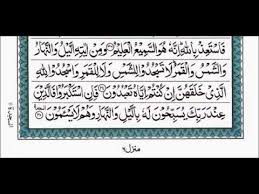 فَاسْتَعِذْ بِاللّٰهِ اِنَّهٗ هُوَ السَّمِيْعُ الْعَلِيْمُ وَمِنْ اٰيٰتِهِ الَّيْلُ وَالنَّهَارُ
وَالشَّمْسُ وَالْقَمَرُ لَا تَسْجُدُوْا لِلشَّمْسِ وَلَا لِلْقَمَرِ وَاسْجُدُوْا لِلّٰهِ
الَّذِيْ خَلَقَهُنَّ اِنْ كُنْتُمْ اِيَّاهُ تَعْبُدُوْنَ فَاِنِ اسْتَكْبَرُوْا فَالَّذِيْنَ
عِنْدَ رَبِّكَ يُسَبِّحُوْنَ لَهٗ بِالَّيْلِ وَالنَّهَارِ وَهُمْ لَا يَسْـَٔمُوْنَ
منزل ٦